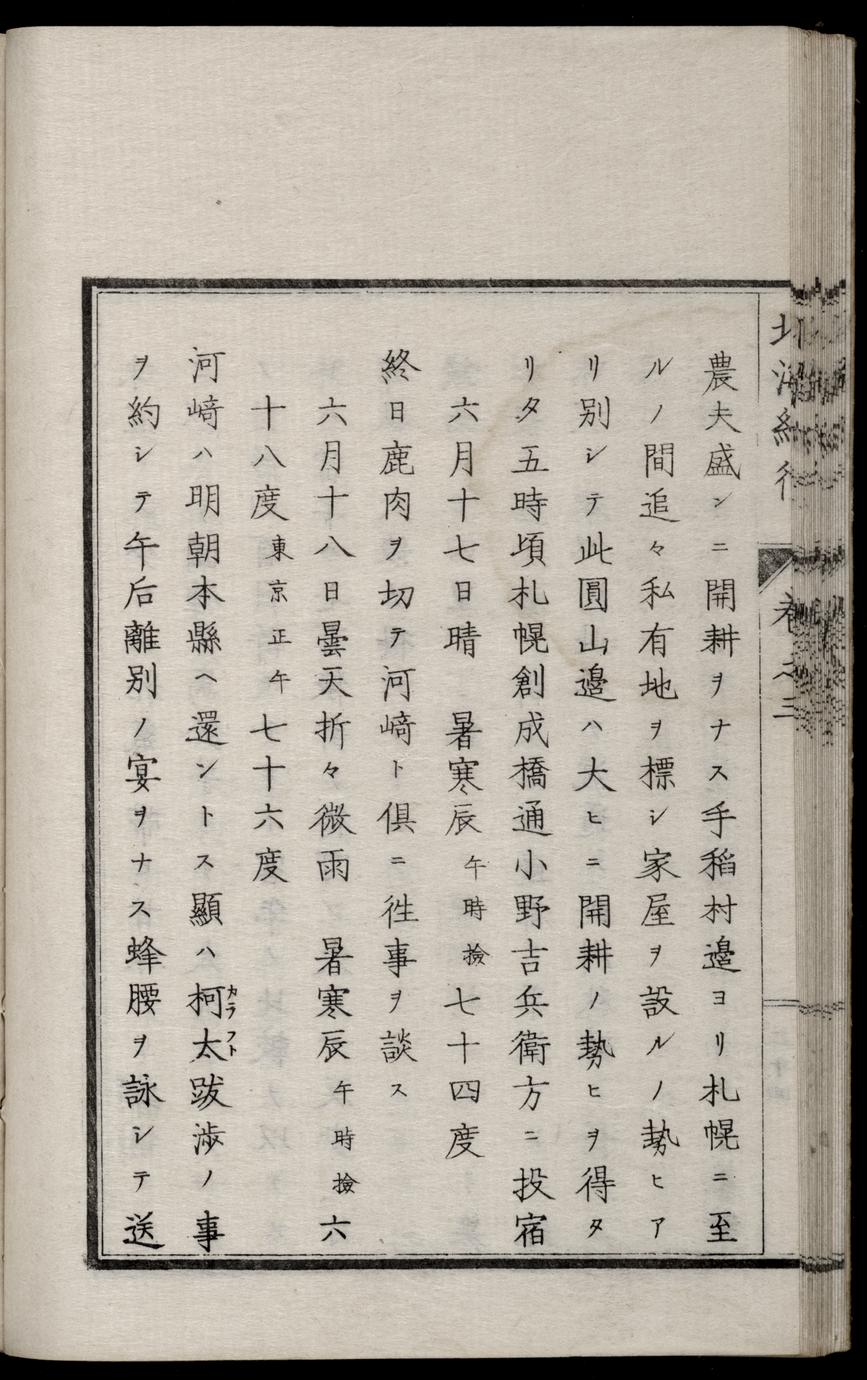 農夫盛ンニ開耕ヲナス手稻村邉ヨリ札幌ニ至
ルノ間追々私有地ヲ標シ家屋ヲ設ルノ勢ヒア
リ別シテ此圓山邉ハ大ヒニ開耕ノ勢ヒヲ得タ
リタ五時頃札幌創成橋通小野吉兵衛方ニ投宿
六月十七日晴 暑寒辰午時撿七十四度
終日鹿肉ヲ切テ河﨑ト倶ニ徃事ヲ談ス
六月十八日曇天折々微雨 暑寒辰午時撿六
十八度東京正午七十六度
河﨑ハ明朝本縣ヘ還ントス顯ハ柯太カラフト跋渉ノ事
ヲ約シテ午后離別ノ宴ヲナス蜂腰ヲ詠シテ送
卷之三